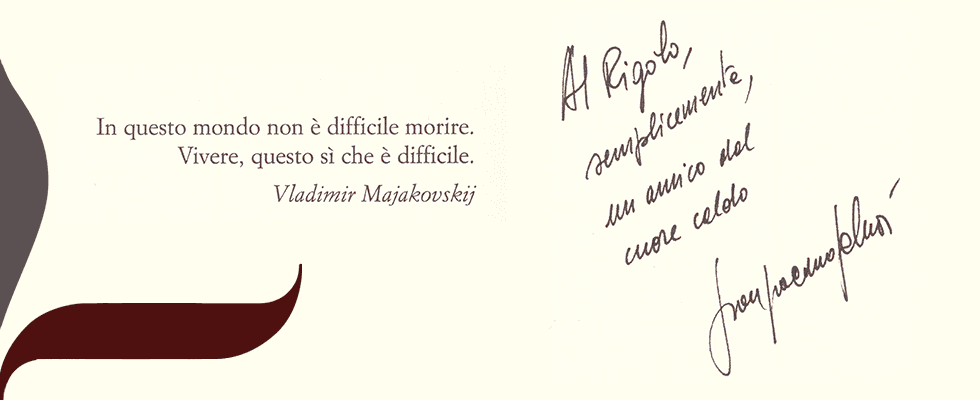 In questo mondo non è difficile morire.
Vivere, questo sì che è difficile.
Vladimir Majakovskij
Al Rigolo,
semplicemente,
un amico dal
cuore caldo